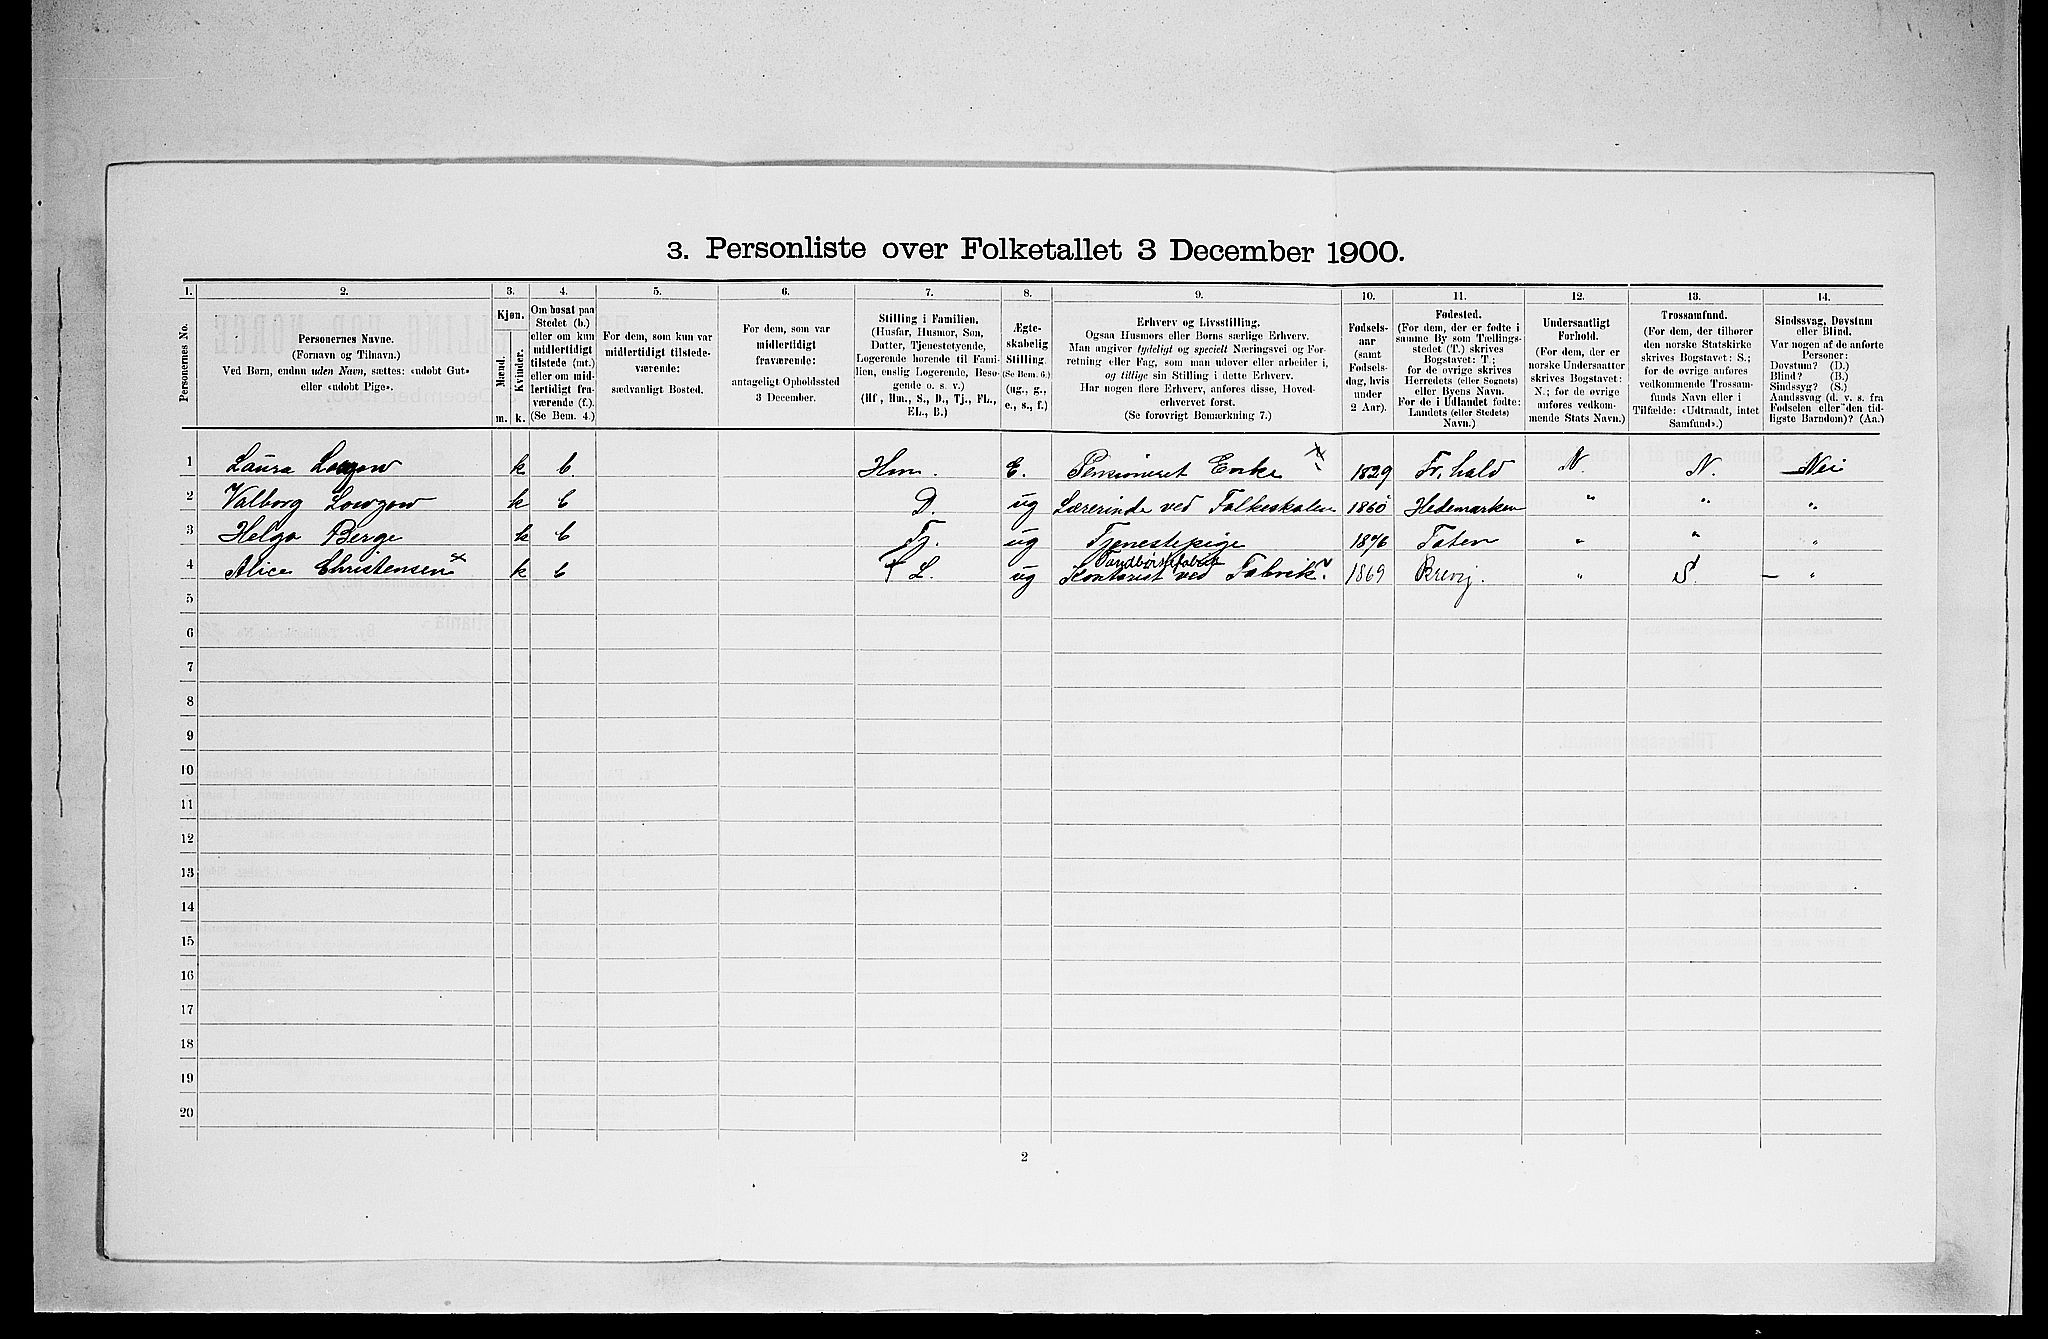 3. Personliste over Folketallet 3 December 1900.
1. 2. 3. 4. 5. 6. 7. 8. 9. 10. 11. 12. 13. 14.
Personernes No.
Personernes Navne.
(Fornavn og Tilnavn.)
Ved Børn, endnu uden Navn, sættes: «udøbt Gut»
eller «udøbt Pige».
Kjøn.
Mænd.
Kvinder.
m. k.
Om bosat paa
Stedet (b.)
eller om kun
midlertidigt
tilstede (mt.)
eller om mid-
lertidigt fra-
værende (f.).
(Se Bem. 4.)
For dem, som kun var
midlertidigt tilstede-
værende:
sædvanligt Bosted.
For dem, som var
midlertidigt
fraværende:
antageligt Opholdssted
3 December.
Stilling i Familien,
(Husfar, Husmor, Søn,
Datter, Tjenestetyende,
Logerende hørende til Fami-
lien, enslig Logerende, Besø-
gende o. s. v.)
(Hf, Hm., S., D., Tj., FL.,
EL., B.)
Ægte-
skabelig
Stilling.
(Se Bem. 6.)
(ug., g.,
e., s., f.)
Erhverv og Livsstilling.
Ogsaa Husmors eller Børns særlige Erhverv.
Man angiver tydeligt og specielt Næringsvei og For-
retning eller Fag, som man udøver eller arbeider i,
og tillige sin Stilling i dette Erhverv.
Har nogen flere Erhverv, anføres disse, Hoved-
erhvervet først.
(Se forøvrigt Bemærkning 7.)
Fødsels-
aar
(samt
Fødsels-
dag, hvis
under
2 Aar).
Fødested.
(For dem, der er fødte i
samme By som Tællings-
stedet (T.) skrives
Bogstavet: T.;
for de øvrige skrives
Herredets (eller Sognets)
eller Byens Navn.
For de i Udlandet fødte:
Landets (eller Stedets)
Navn.)
Undersaatligt
Forhold.
(For dem, der er
norske Undersaatter
skrives Bogstavet:
N.; for de øvrige
anføres vedkom-
mende Stats Navn.)
Trossamfund.
(For dem, der tilhører
den norske Statskirke
skrives Bogstavet: S.;
for de øvrige anføres
vedkommende Trossam-
funds Navn eller i
Tilfælde: «Udtraadt, intet
Samfund».)
Sindssvag, Døvstum
eller Blind.
Var nogen af de anførte
Personer:
Døvstum? (D.)
Blind? (B.)
Sindssyg? (S.)
Aandssvag (d. v. s. fra
Fødselen eller den tid-
ligste Barndom)? (Aa.)
1 Laura Lowzow k b. Hm. E. Pensioneret Enke 1829 Fr. hald N. N. Nei
2 Valborg Lowzow k b D. ug Lærerinde ved Folkeskolen 1860 Hedemarken " " "
3 Helga Berge k b Tj. ug Tjenestepige 1876 Toten " " "
Tandbørstefabrik
4 Alice Christensen x k b f L. ug Kontorist ved Fabrik. 1869 Brevig. " S. — "
5
6
7
8
9
10
11
12
13
14
15
16
17
18
19
20
2